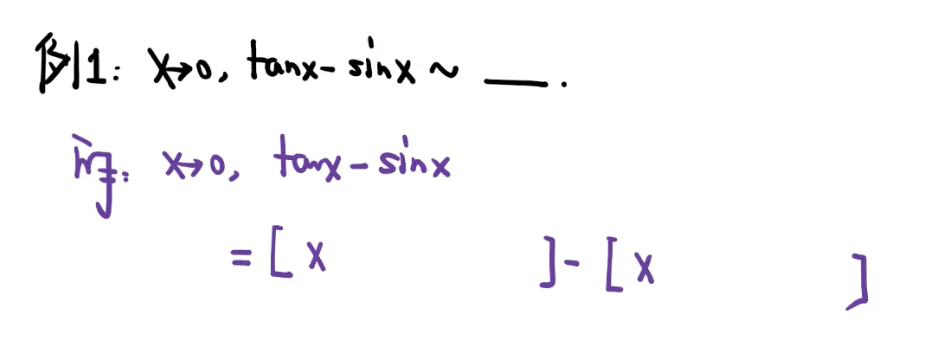 例1: x→0, tanx-sinx ~ ___.
解: x→0, tanx-sinx
= [ x ] - [ x ]